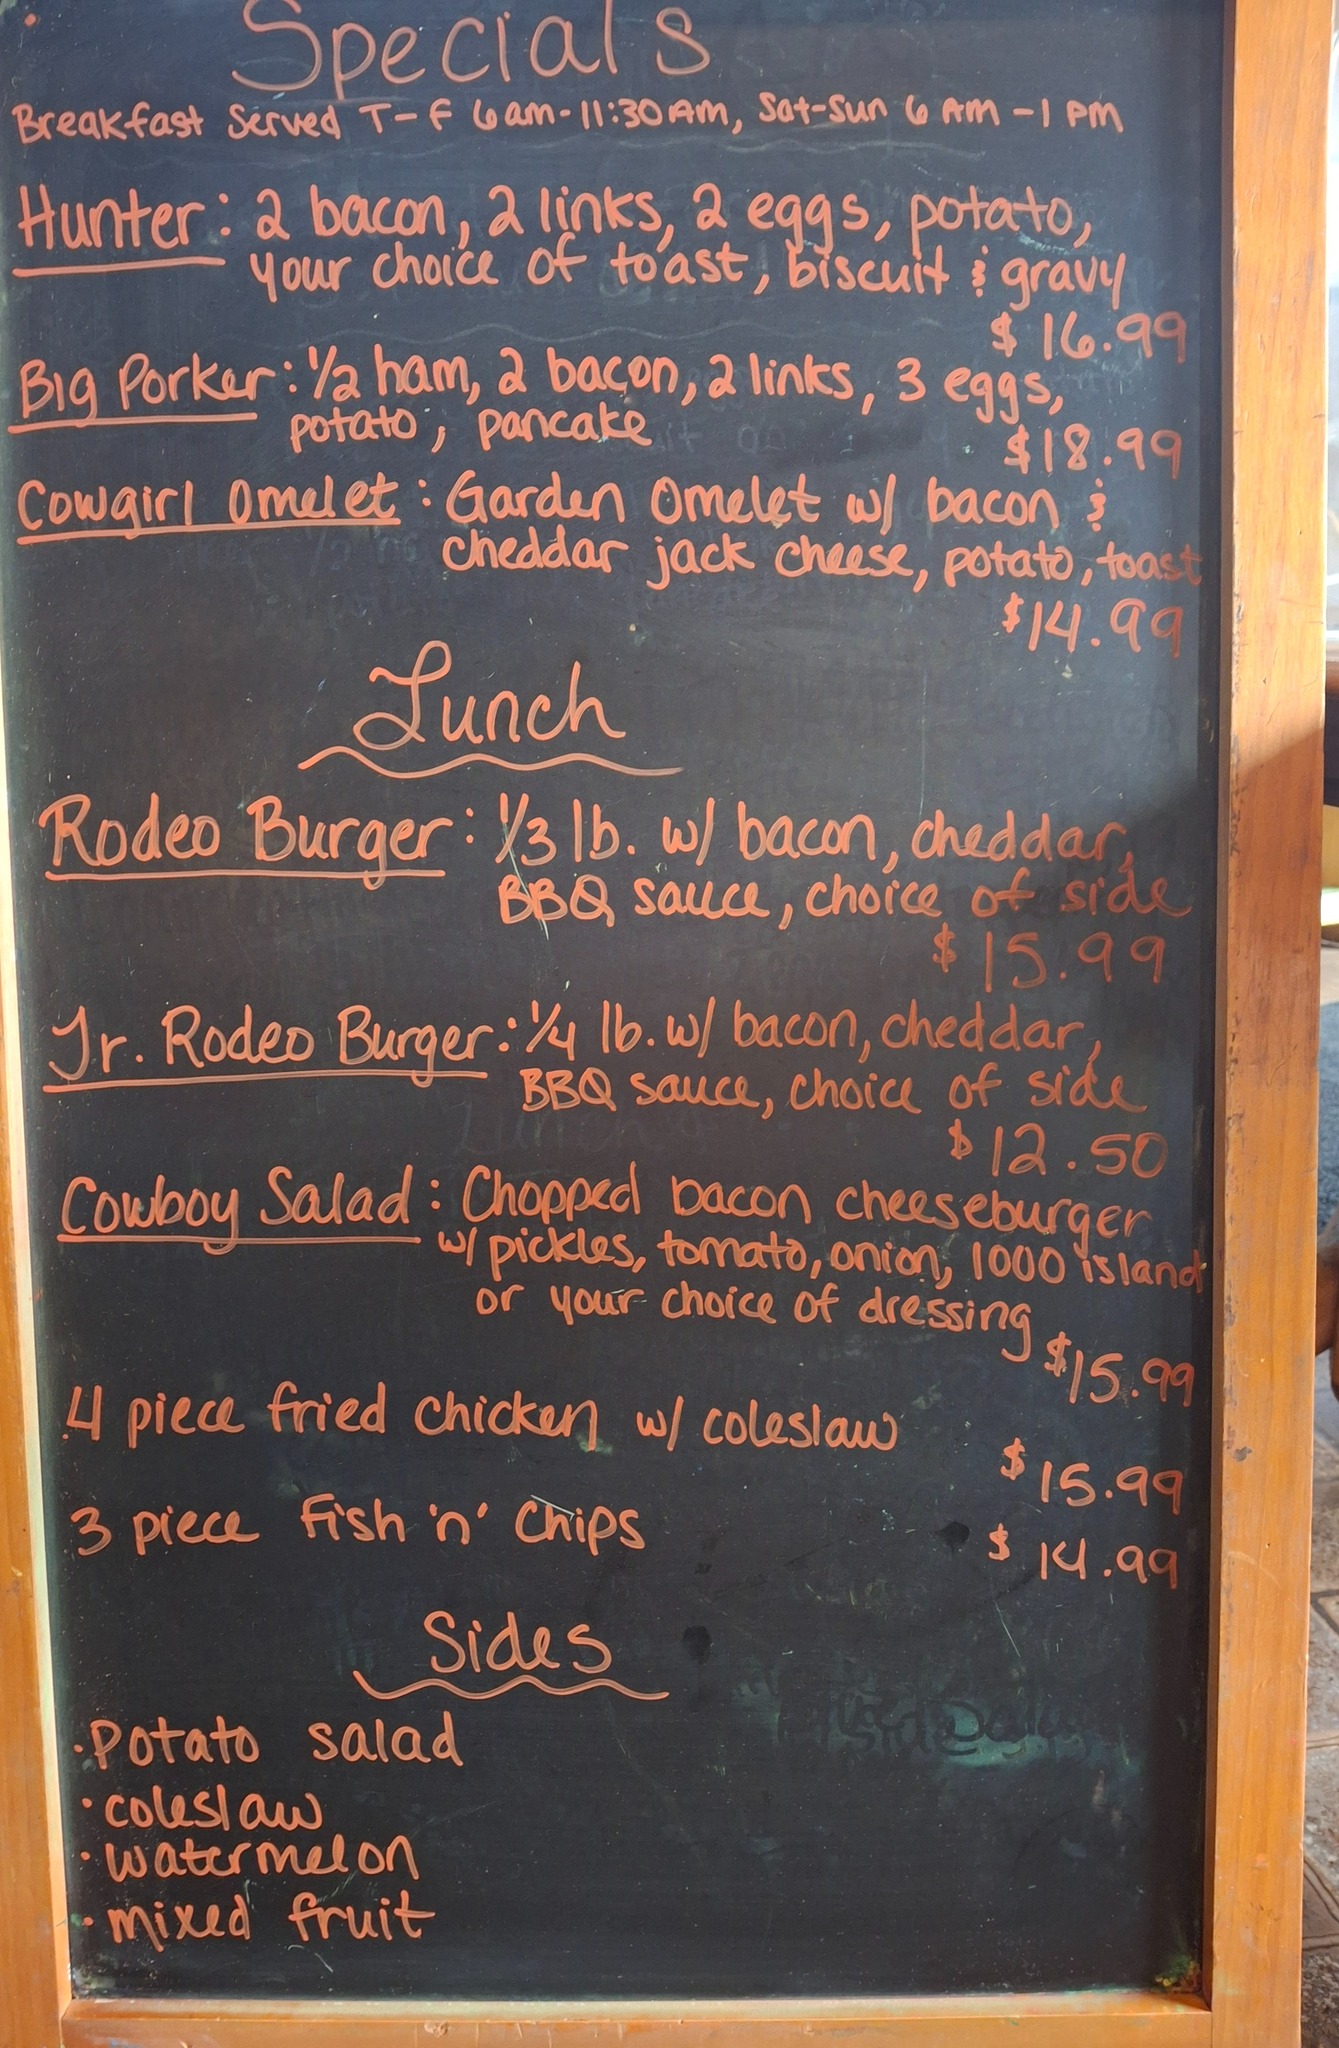 Specials
Breakfast Served T-F 6am-11:30AM, Sat-Sun 6 AM-1 PM
Hunter: 2 bacon, 2 links, 2 eggs, potato,
your choice of toast, biscuit & gravy
$16.99
Big Porker: 1/2 ham, 2 bacon, 2 links, 3 eggs,
potato, pancake
$18.99
Cowgirl Omelet: Garden Omelet w/ bacon &
cheddar jack cheese, potato, toast
$14.99
Lunch
Rodeo Burger: 1/3 lb. w/ bacon, cheddar,
BBQ sauce, choice of side
$15.99
Jr. Rodeo Burger: 1/4 lb. w/ bacon, cheddar,
BBQ sauce, choice of side
$12.50
Cowboy Salad: Chopped bacon cheeseburger
w/ pickles, tomato, onion, 1000 island
or your choice of dressing
$15.99
4 piece fried chicken w/ coleslaw $15.99
3 piece Fish 'n' Chips $14.99
Sides
·Potato salad
·coleslaw
·watermelon
·mixed fruit